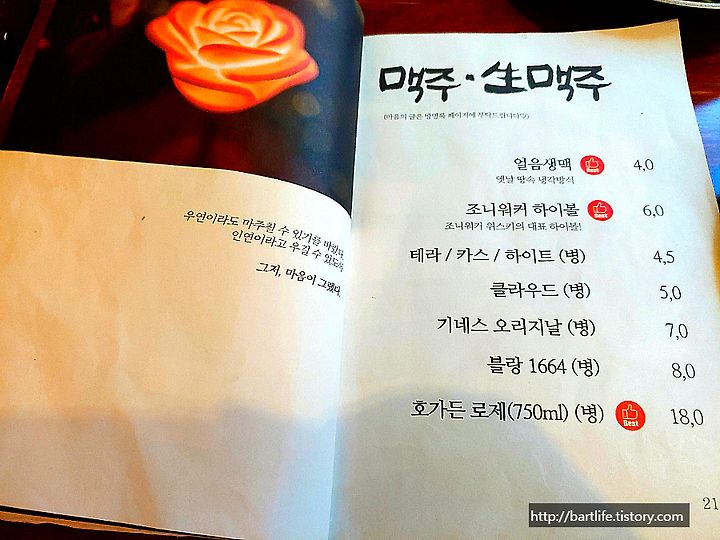 우연이라도 마주칠 수 있기를 바랬다.
인연이라고 우길 수 있도록
그저, 마음이 그랬다.
맥주·生맥주
(마음의 글은 방명록 페이지에 부탁드립니다♡)
얼음생맥 Best 4,0
옛날 땅속 냉각방식
조니워커 하이볼 Best 6,0
조니워커 위스키의 대표 하이볼!
테라 / 카스 / 하이트 (병) 4,5
클라우드 (병) 5,0
기네스 오리지날 (병) 7,0
블랑 1664 (병) 8,0
호가든 로제(750ml) (병) Best 18,0
21
http://bartlife.tistory.com